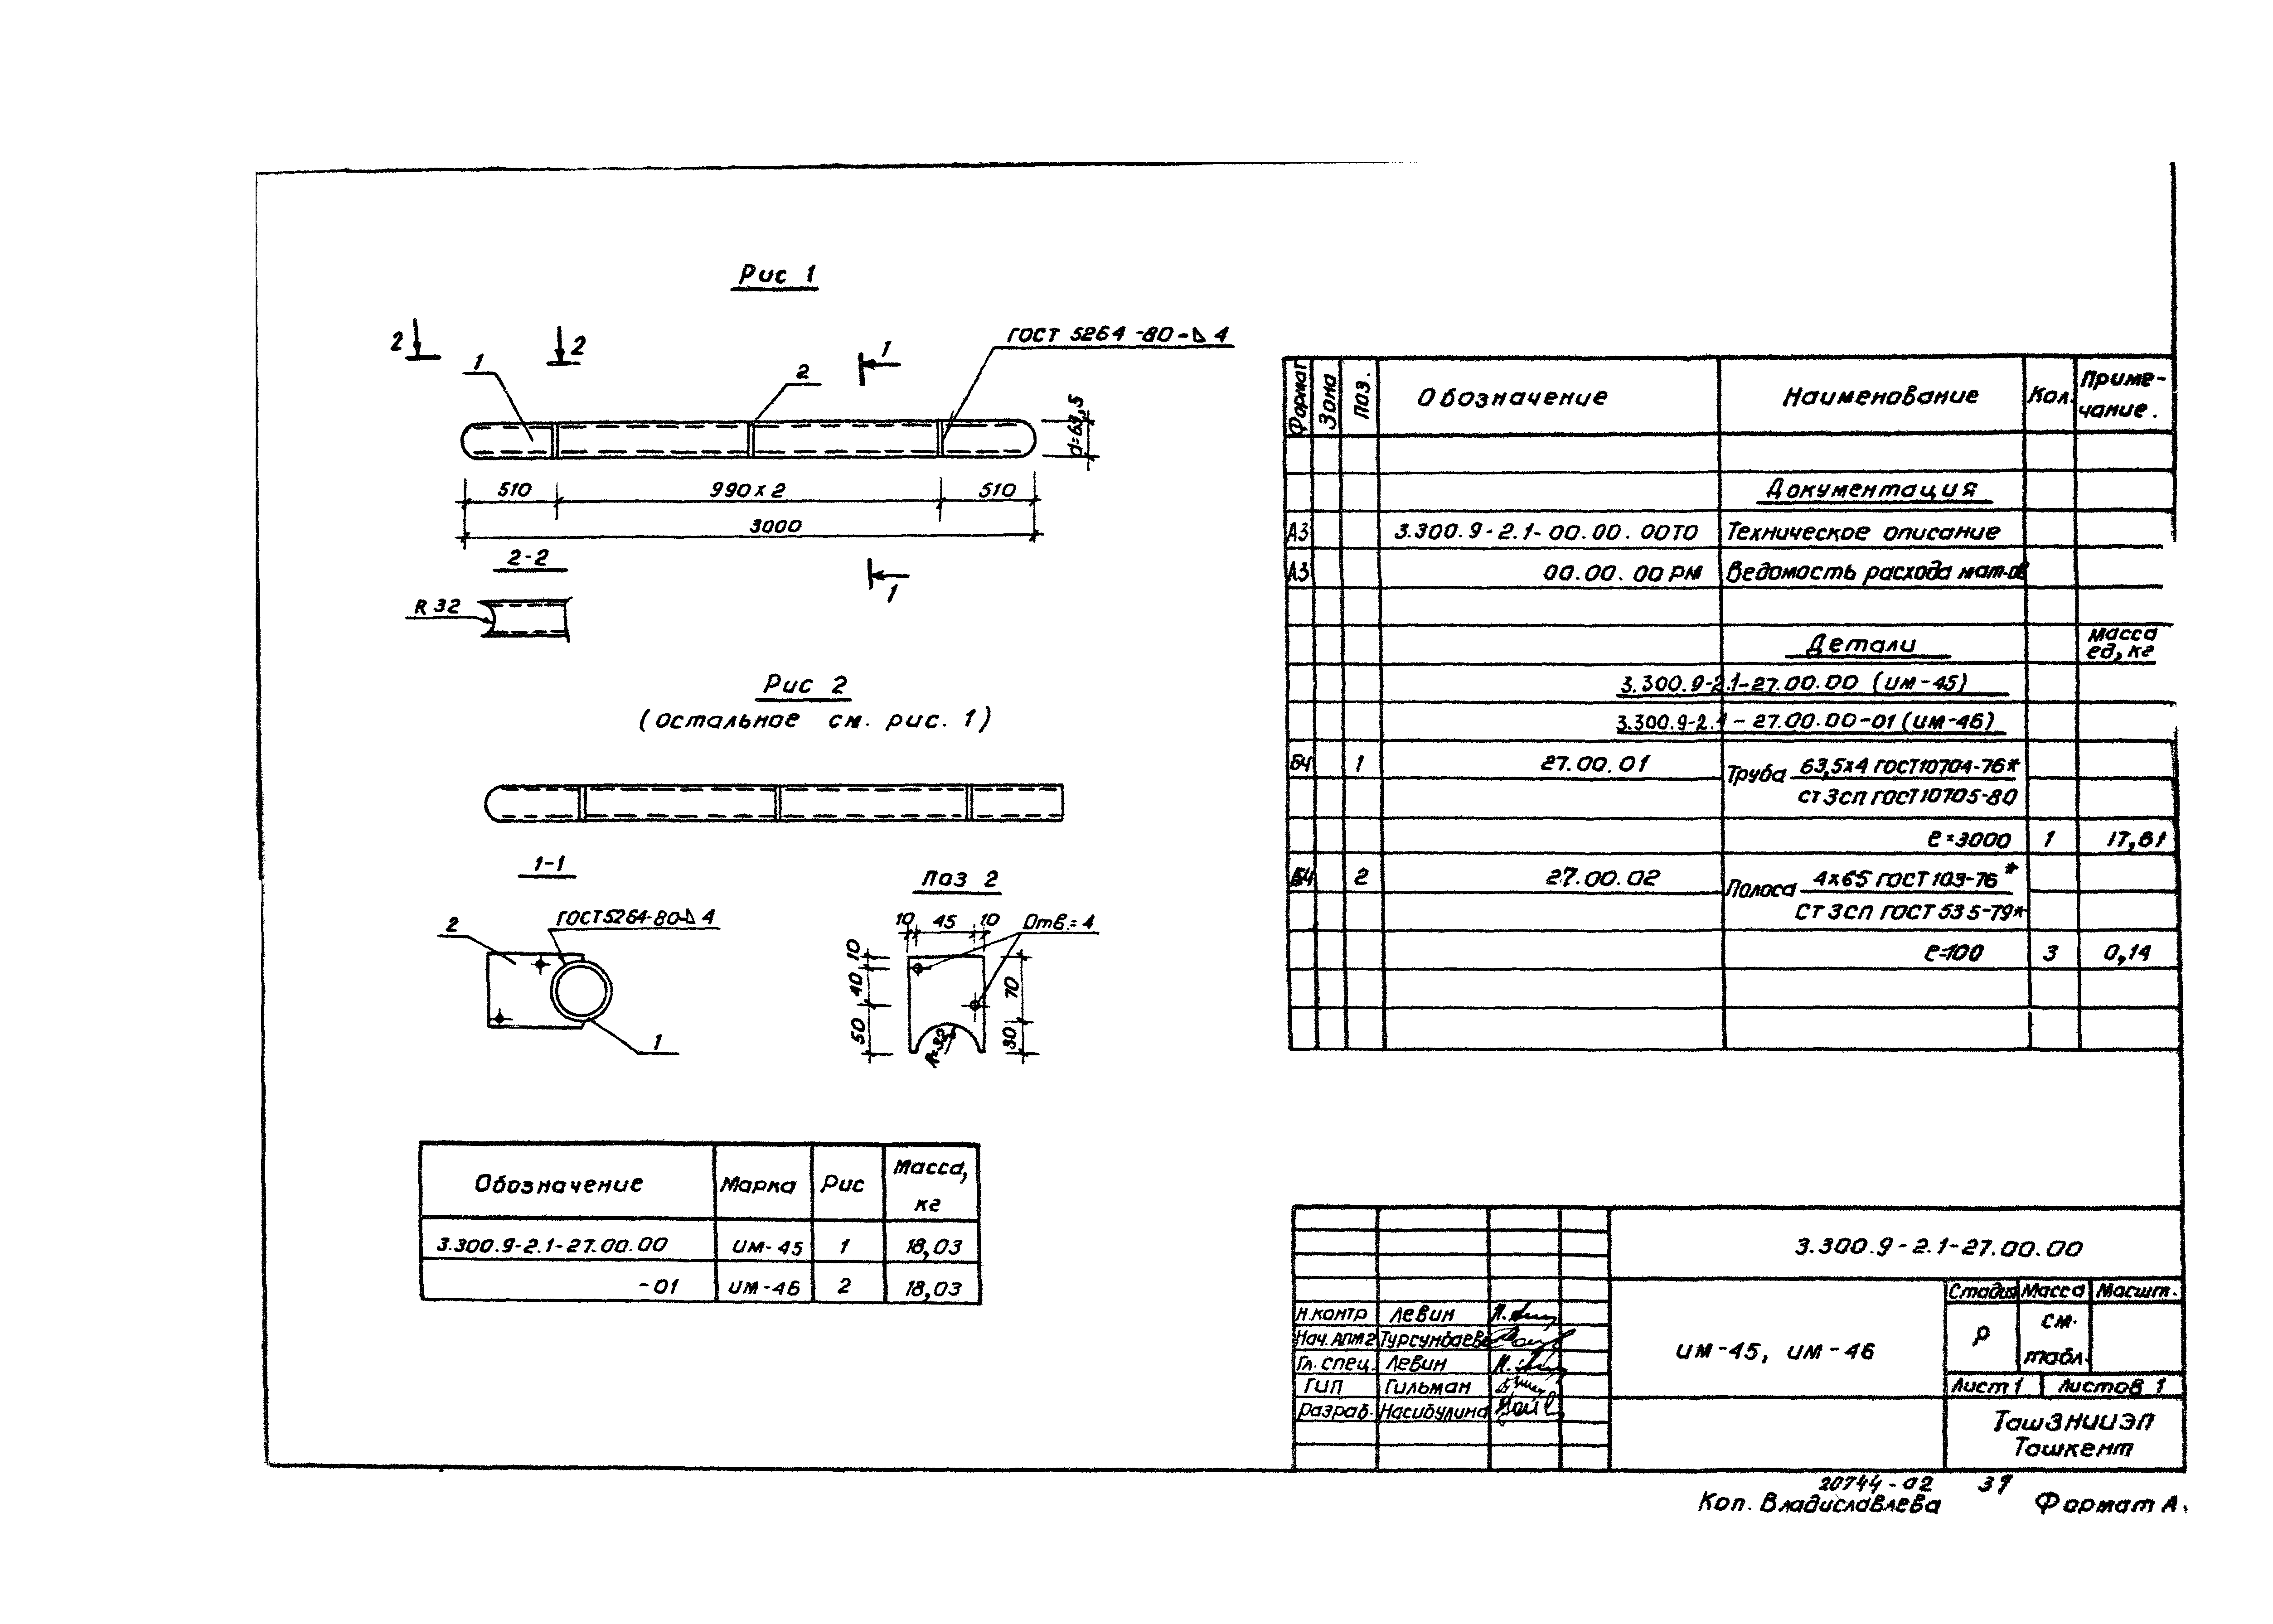 Рис 1
2
2
1
2
1
ГОСТ 5264-80-⊿4
d=63,5
510
990x2
510
3000
2-2
1
R 32
Рис 2
(остальное см. рис. 1)
1-1
2
ГОСТ5264-80-⊿4
1
Поз 2
10 45 10
Отв.=4
10
40
50
70
30
R=32
Обозначение Марка Рис Масса, кг
3.300.9-2.1-27.00.00 им-45 1 18,03
-01 им-46 2 18,03
Формат Зона Поз. Обозначение Наименование Кол. Приме-
чание.
Документация
А3 3.300.9-2.1-00.00.00ТО Техническое описание
А3 00.00.00РМ Ведомость расхода мат-ов
Детали масса
ед, кг
3.300.9-2.1-27.00.00 (им-45)
3.300.9-2.1-27.00.00-01 (им-46)
БЧ 1 27.00.01 Труба 63,5x4 ГОСТ10704-76*
Ст3сп ГОСТ10705-80
ℓ=3000 1 17,61
БЧ 2 27.00.02 Полоса 4x65 ГОСТ103-76*
Ст3сп ГОСТ535-79*
ℓ=100 3 0,14
3.300.9-2.1-27.00.00
им-45, им-46
Стадия Масса Масшт.
Р см.
табл.
Лист 1 Листов 1
Н.контр Левин
Нач.АПМ2 Турсунбаева
Гл. спец. Левин
ГИП Гильман
Разраб. Насибулина
ТашЗНИИЭП
Ташкент
20744-02
Коп. Владиславлева Формат А.